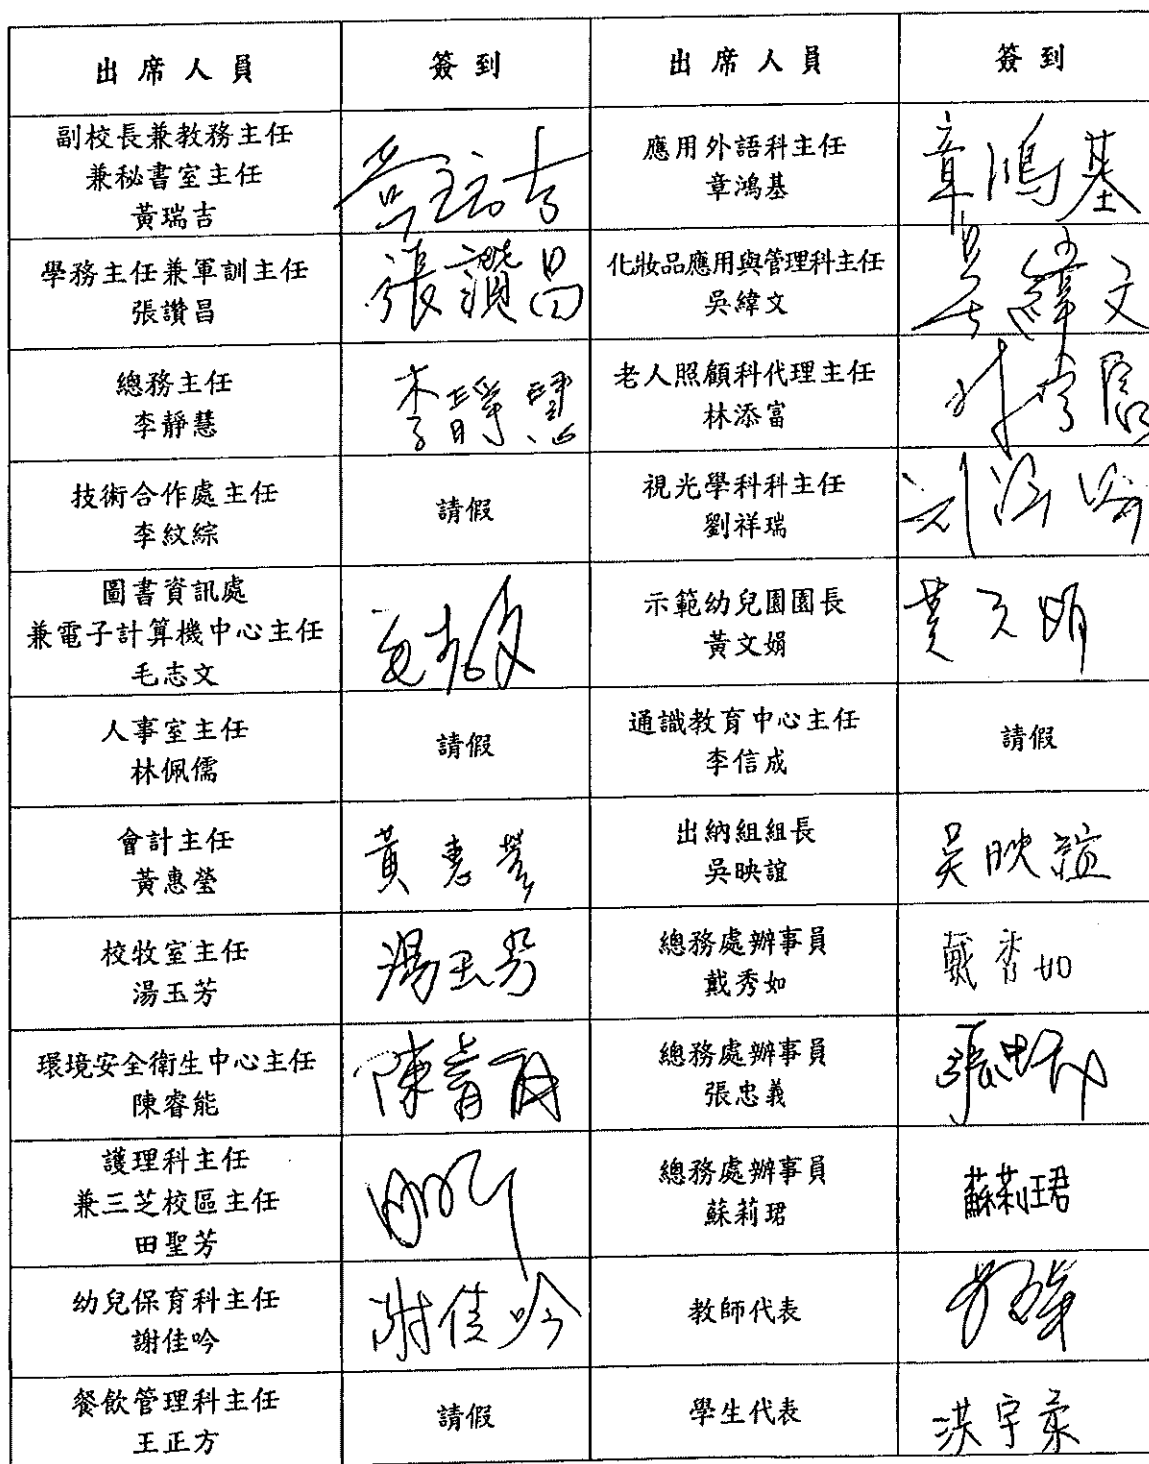 出席人員 簽到 出席人員 簽到
副校長兼教務主任
兼秘書室主任
黃瑞吉
黃瑞吉
應用外語科主任
章鴻基
章鴻基
學務主任兼軍訓主任
張讚昌
張讚昌
化妝品應用與管理科主任
吳緯文
吳緯文
總務主任
李靜慧
李靜慧
老人照顧科代理主任
林添富
技術合作處主任
李紋綜
請假
視光學科科主任
劉祥瑞
圖書資訊處
兼電子計算機中心主任
毛志文
示範幼兒園園長
黃文娟
黃文娟
人事室主任
林佩儒
請假
通識教育中心主任
李信成
請假
會計主任
黃惠瑩
黃惠瑩
出納組組長
吳映誼
吳映誼
校牧室主任
湯玉芳
湯玉芳
總務處辦事員
戴秀如
戴秀如
環境安全衛生中心主任
陳睿能
總務處辦事員
張忠義
張忠義
護理科主任
兼三芝校區主任
田聖芳
總務處辦事員
蘇莉珺
蘇莉珺
幼兒保育科主任
謝佳吟
謝佳吟
教師代表
餐飲管理科主任
王正方
請假
學生代表
洪宇柔